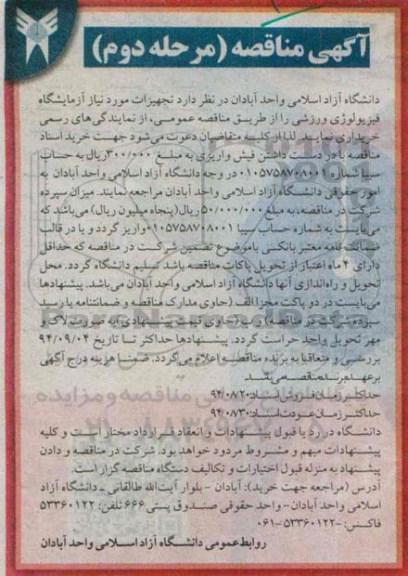 آگهی مناقصه (مرحله دوم)
دانشگاه آزاد اسلامی واحد آبادان در نظر دارد تجهیزات مورد نیاز آزمایشگاه
فیزیولوژی ورزشی را از طریق مناقصه عمومی، از نمایندگی‌های رسمی
خریداری نمایید. لذا از کلیه متقاضیان دعوت می‌شود جهت خرید اسناد
مناقصه با در دست داشتن فیش واریزی به مبلغ ۳۰۰/۰۰۰ ریال به حساب
سیبا شماره ۰۱۰۵۷۵۸۷۰۸۰۰۱ در وجه دانشگاه آزاد اسلامی واحد آبادان به
امور حقوقی دانشگاه آزاد اسلامی واحد آبادان مراجعه نمایند. میزان سپرده
شرکت در مناقصه، به مبلغ ۵۰/۰۰۰/۰۰۰ ریال (پنجاه میلیون ریال) می‌باشد که
می‌بایست به شماره حساب سیبا ۰۱۰۵۷۵۸۷۰۸۰۰۱ واریز گردد و یا در قالب
ضمانت نامه معتبر بانکی با موضوع تضمین شرکت در مناقصه که حداقل
دارای ۴ ماه اعتبار از تحویل پاکات مناقصه باشد تسلیم دانشگاه گردد. محل
تحویل و راه‌اندازی آنها دانشگاه آزاد اسلامی واحد آبادان می‌باشد. پیشنهادها
می‌بایست در دو پاکت مجزا الف (حاوی مدارک مناقصه و ضمانتنامه یا رسید
سپرده شرکت در مناقصه) و ب (حاوی قیمت پیشنهادی) به صورت لاک و
مهر تحویل واحد حراست گردد. پیشنهادها حداکثر تا تاریخ ۹۴/۰۹/۰۴
بررسی و متعاقبا به برنده مناقصه اعلام می‌گردد. ضمنا هزینه درج آگهی
برعهده برنده مناقصه می‌باشد.
حداکثر زمان فروش اسناد: ۹۴/۰۸/۲۰
حداکثر زمان عودت اسناد: ۹۴/۰۸/۳۰
دانشگاه در رد یا قبول پیشنهادات و انعقاد قرارداد مختار است و کلیه
پیشنهادات مبهم و مشروط مردود خواهد بود. شرکت در مناقصه و دادن
پیشنهاد به منزله قبول اختیارات و تکالیف دستگاه مناقصه گزار است.
آدرس (مراجعه جهت خرید): آبادان - بلوار آیت‌الله طالقانی - دانشگاه آزاد
اسلامی واحد آبادان - واحد حقوقی صندوق پستی ۶۶۶ تلفن: ۵۳۳۶۰۱۲۲
فاکس: ۵۳۳۶۰۱۲۲-۰۶۱
روابط عمومی دانشگاه آزاد اسلامی واحد آبادان